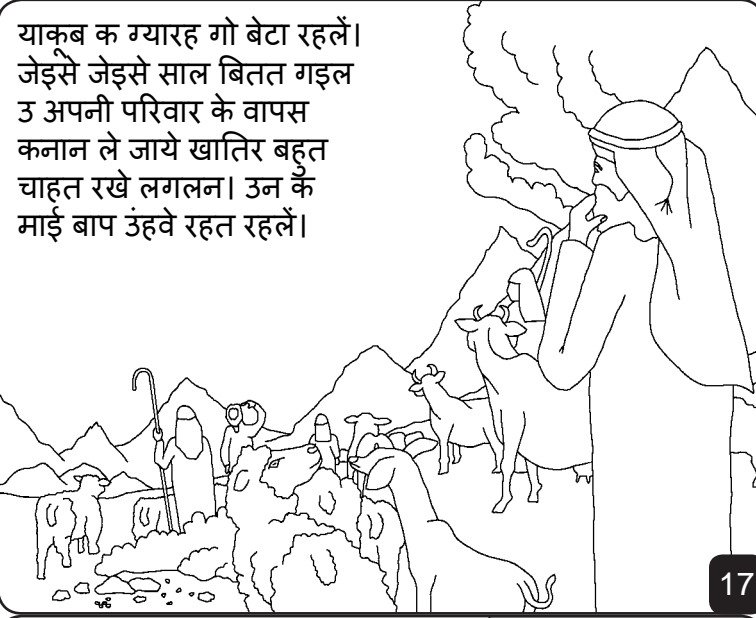 याकूब क ग्यारह गो बेटा रहलें।
जेइसे जेइसे साल बितत गइल
उ अपनी परिवार के वापस
कनान ले जाये खातिर बहुत
चाहत रखे लगलन। उन कॅ
माई बाप उंहवे रहत रहलें।
17